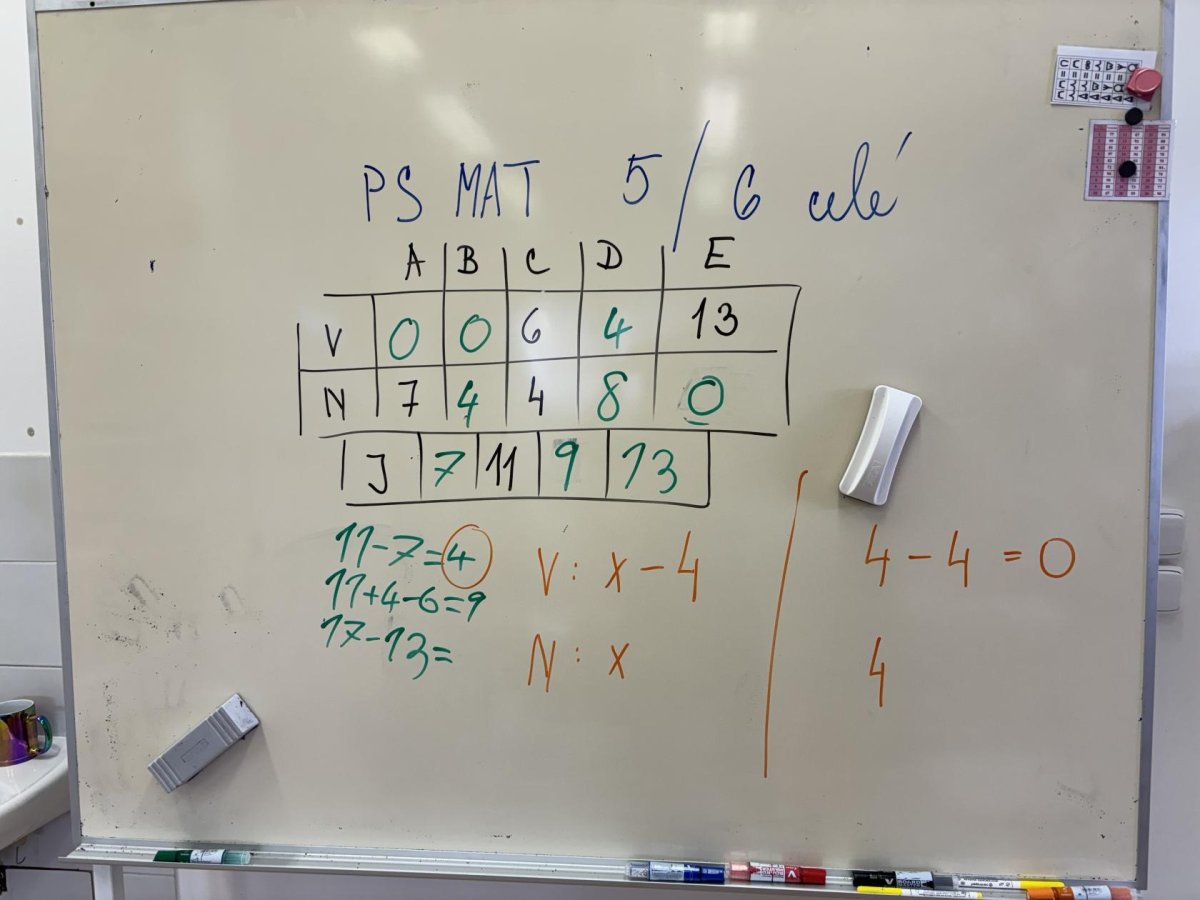 PS MAT 5/6 celé
A B C D E
V 0 0 6 4 13
N 7 4 4 8 0
J 7 11 9 13
11-7=4
11+4-6=9
17-13=
V: x-4
N: x
4-4=0
4